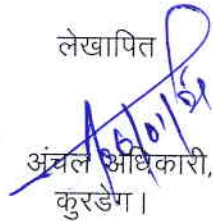 लेखापित
अंचल अधिकारी,
कुरडेग।